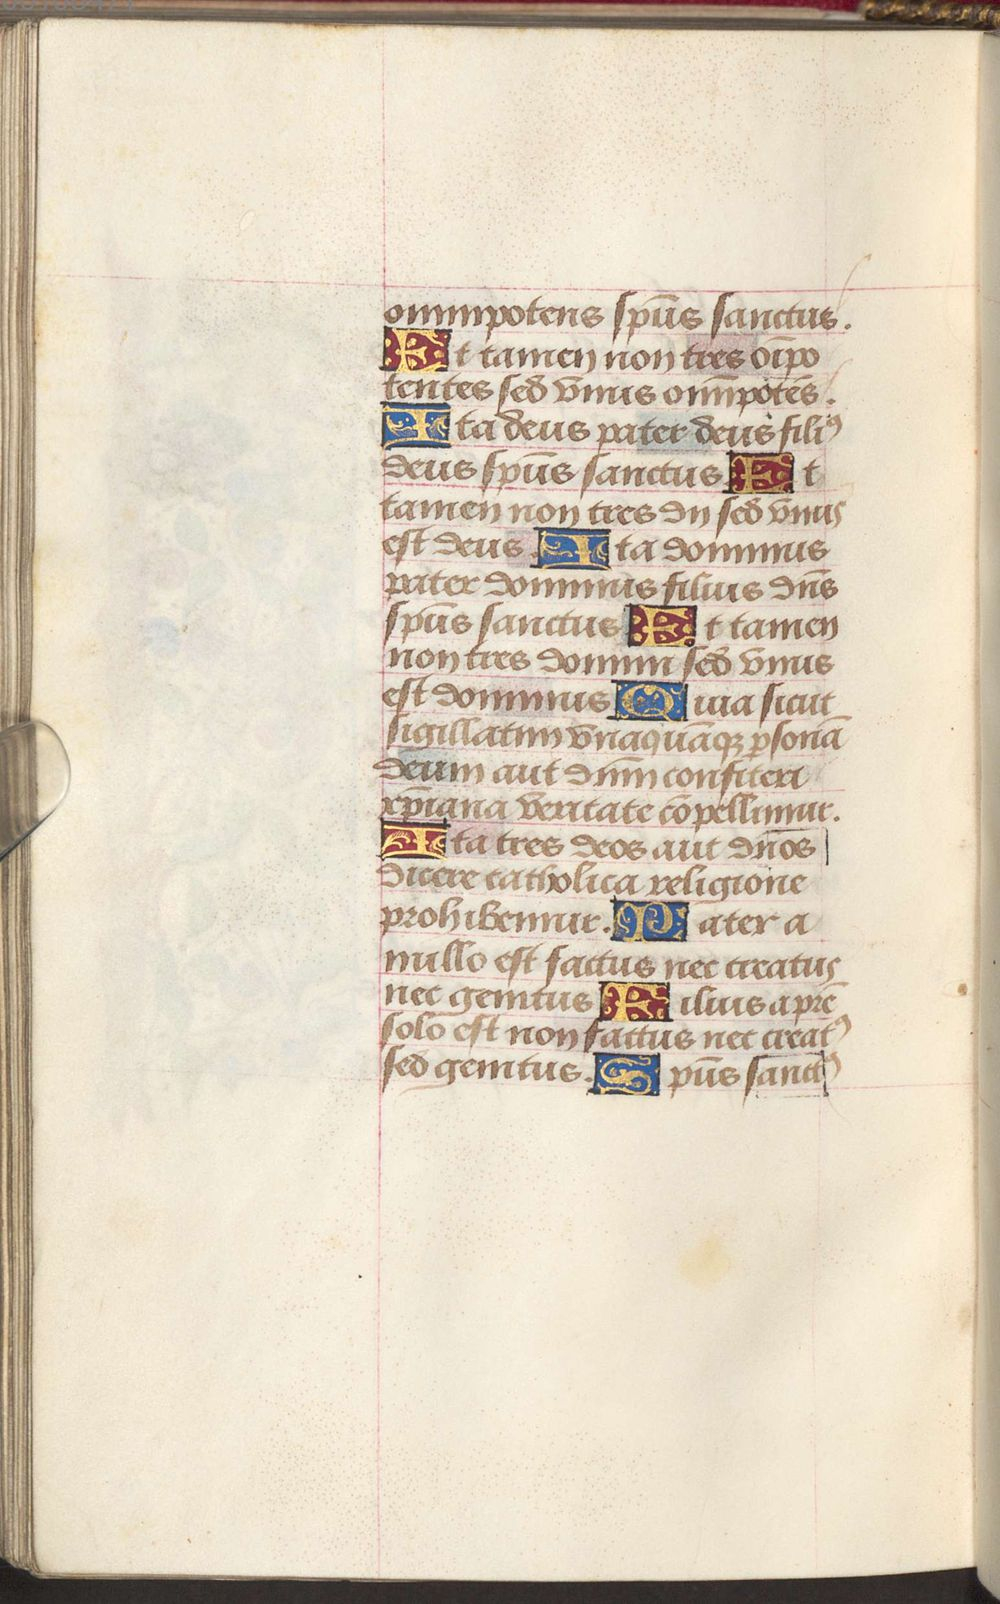 omnipotens spūs sanctus.
Et tamen non tres oīpo
tentes sed vnus omīpotēs.
Ita deus pater deus filiꝰ
deus spūs sanctus. Et
tamen non tres dii sed vnus
est deus. Ita dominus
pater dominus filius dn̄s
spūs sanctus Et tamen
non tres domini sed vnus
est dominus Quia sicut
sigillatim vnāquāqꝫ ꝑsonā
deum aut dn̄m confiteri
xp̄iana veritate cōpellimur.
Ita tres deos aut dn̄os
dicere catholica religione
prohibemur. Pater a
nullo est factus nec creatus
nec genitus Filius a prē
solo est non factus nec creatꝰ
sed genitus. Spūs sanctꝰ